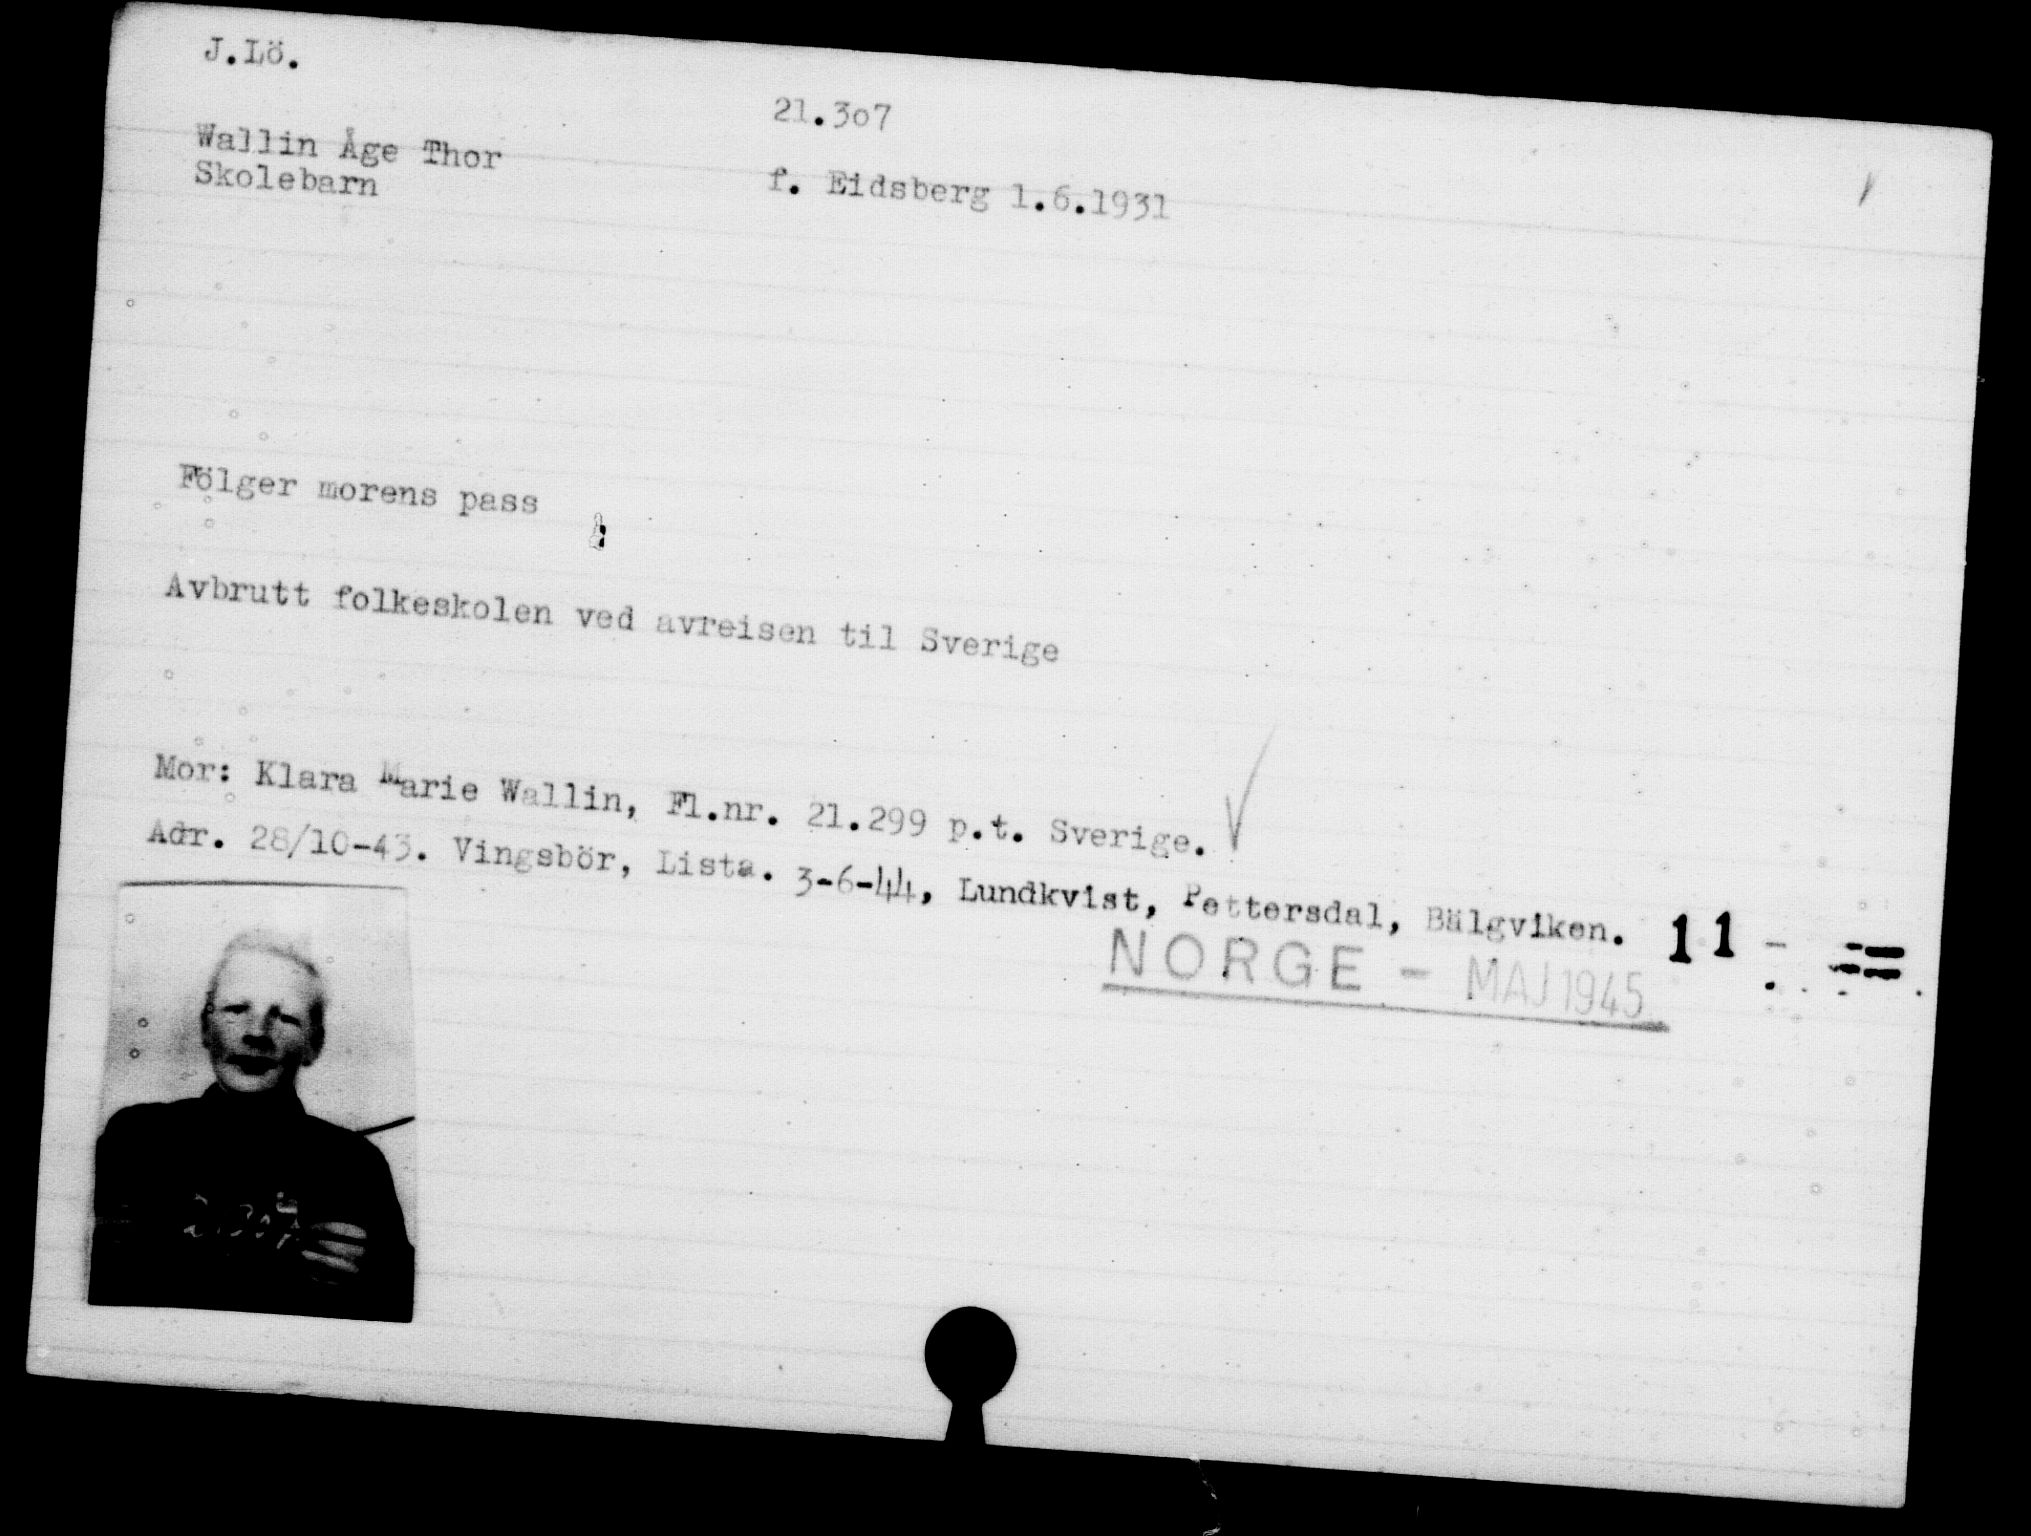 J.Lö.
21.3o7
Wallin Åge Thor
Skolebarn
f. Eidsberg 1.6.1931
Fölger morens pass
Avbrutt folkeskolen ved avreisen til Sverige
Mor: Klara Marie Wallin, Fl.nr. 21.299 p.t. Sverige.
Adr. 28/10-43. Vingsbör, Lista. 3-6-44, Lundkvist, Pettersdal, Bälgviken. 11 -
NORGE - MAJ 1945